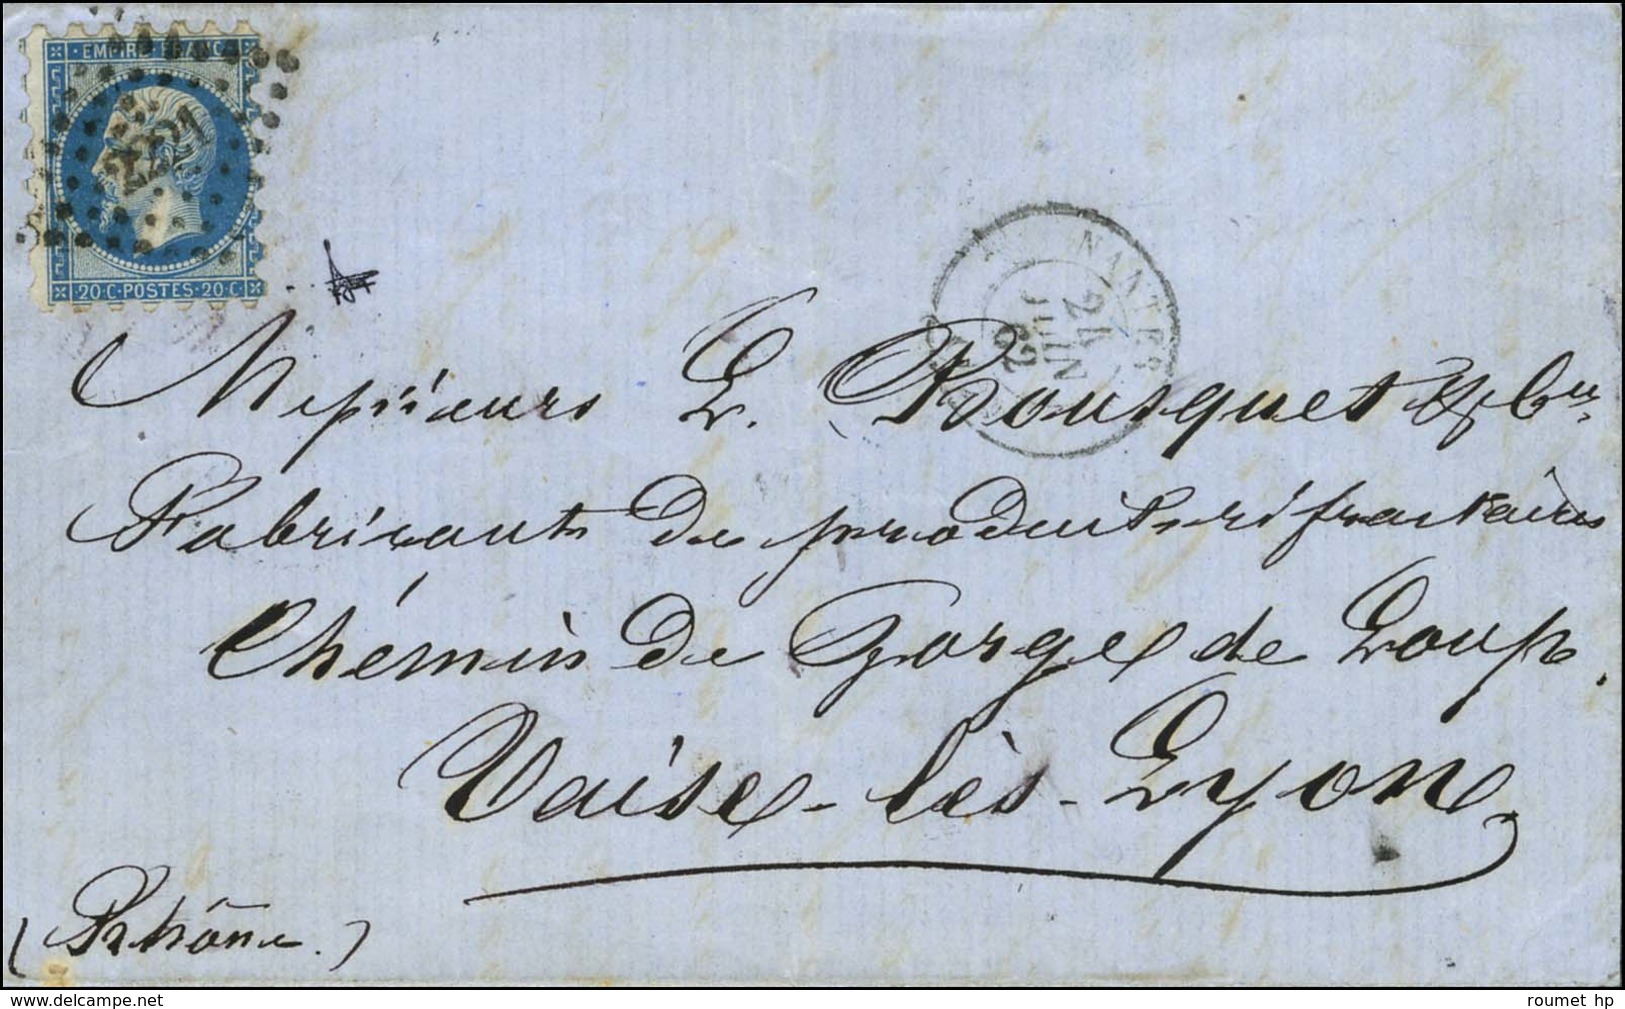 EMPIRE FRANC
2221
20·C·POSTES·20·C·
NANTES
21
JUIN
62
Messieurs L. Rousquet & Cie
Fabricants de produits réfractaires
Chémin de Gorge de Loup.
Vaise-lès-Lyon
(Rhône.)
www.delcampe.net
roumet hp